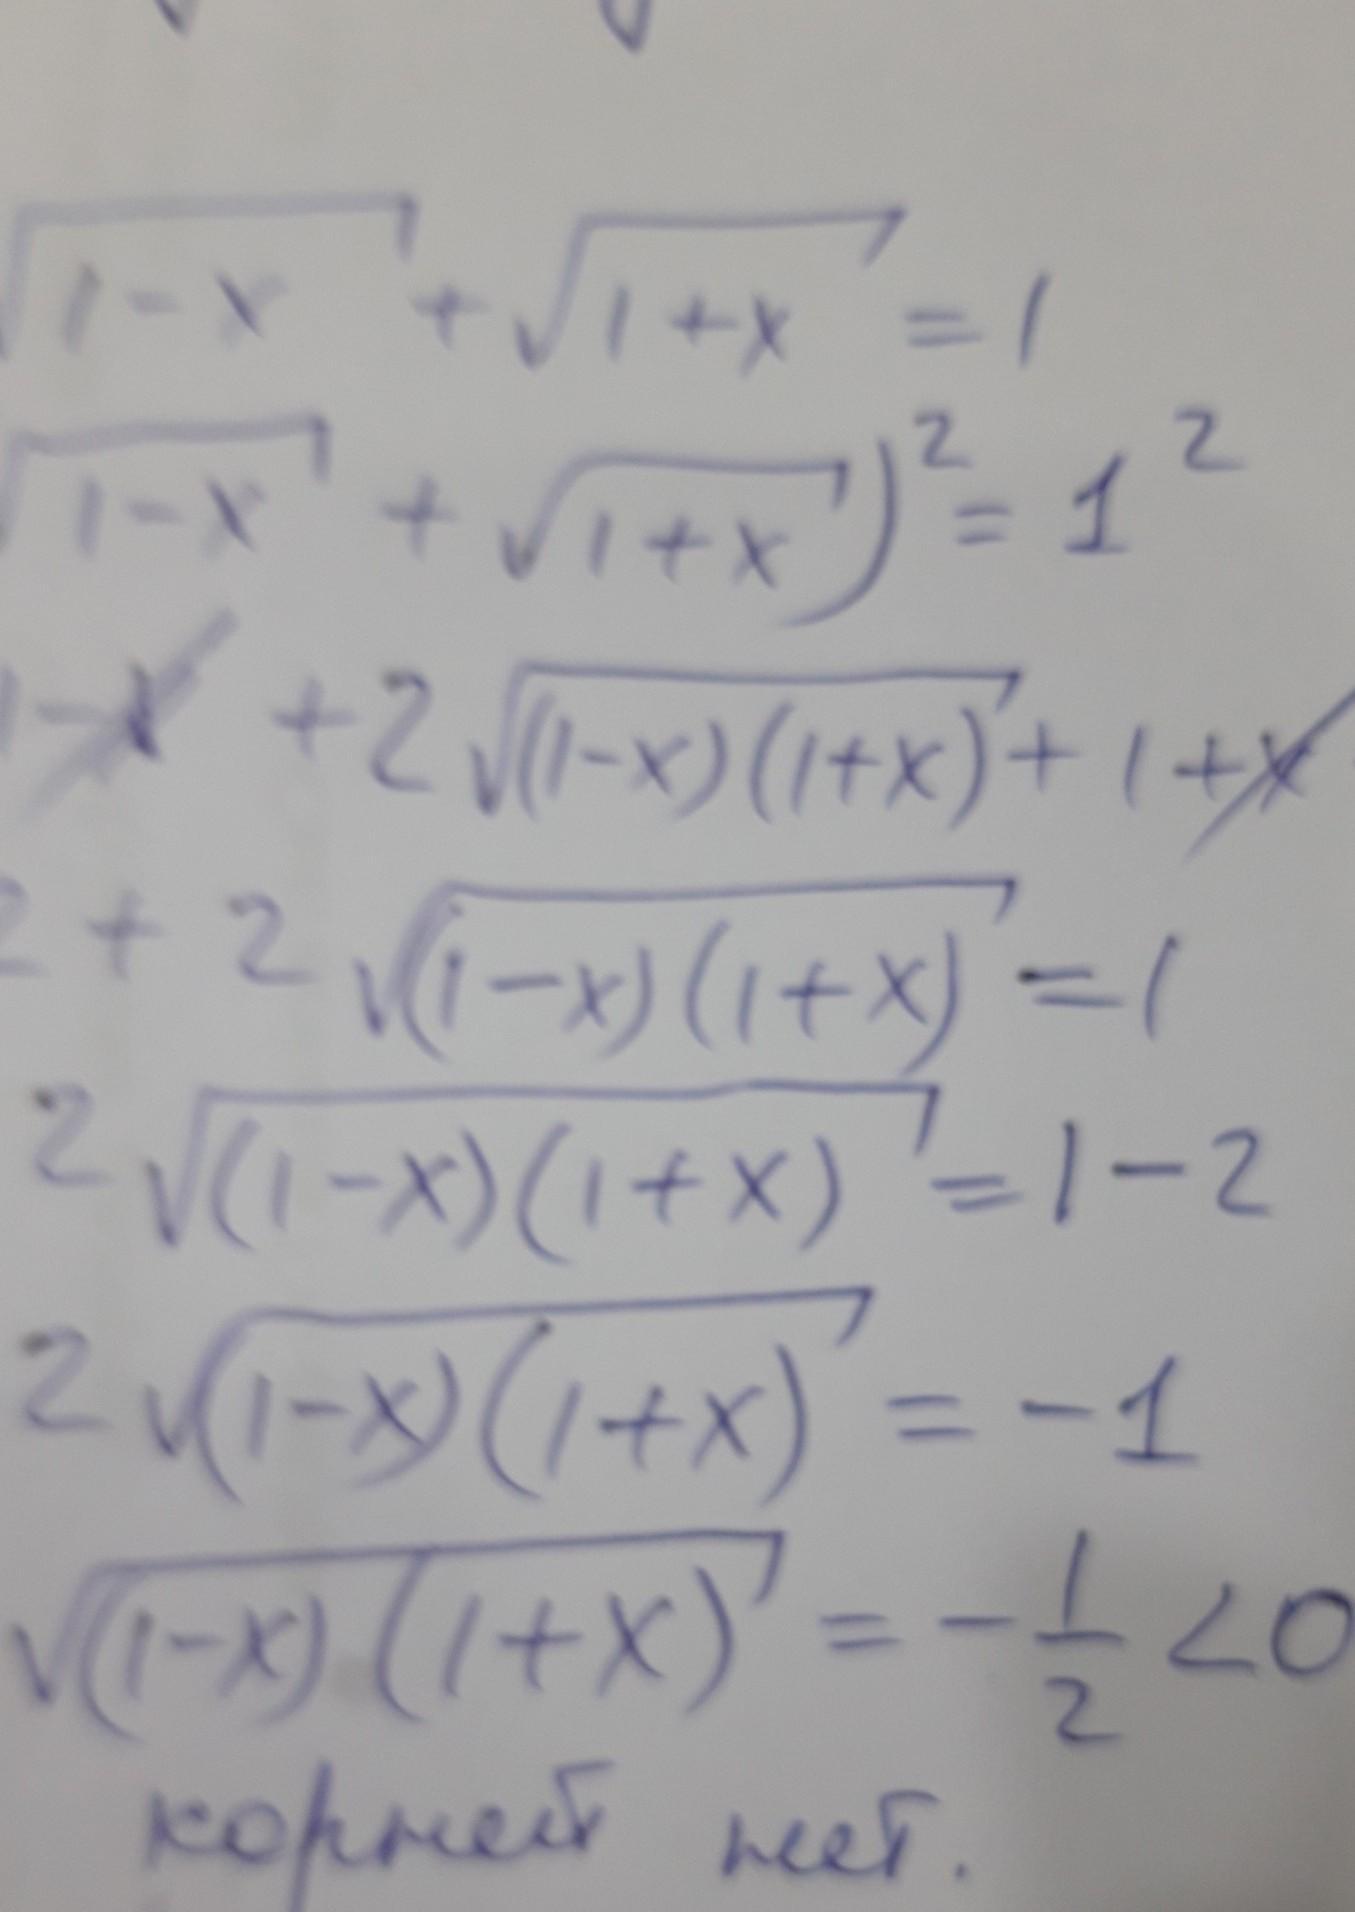 √(1-x) + √(1+x) = 1
√(1-x) + √(1+x))² = 1²
1-x +2√((1-x)(1+x)) + 1+x
2 + 2√((1-x)(1+x)) = 1
2√((1-x)(1+x)) = 1-2
2√((1-x)(1+x)) = -1
√((1-x)(1+x)) = -1/2 <0
корней нет.